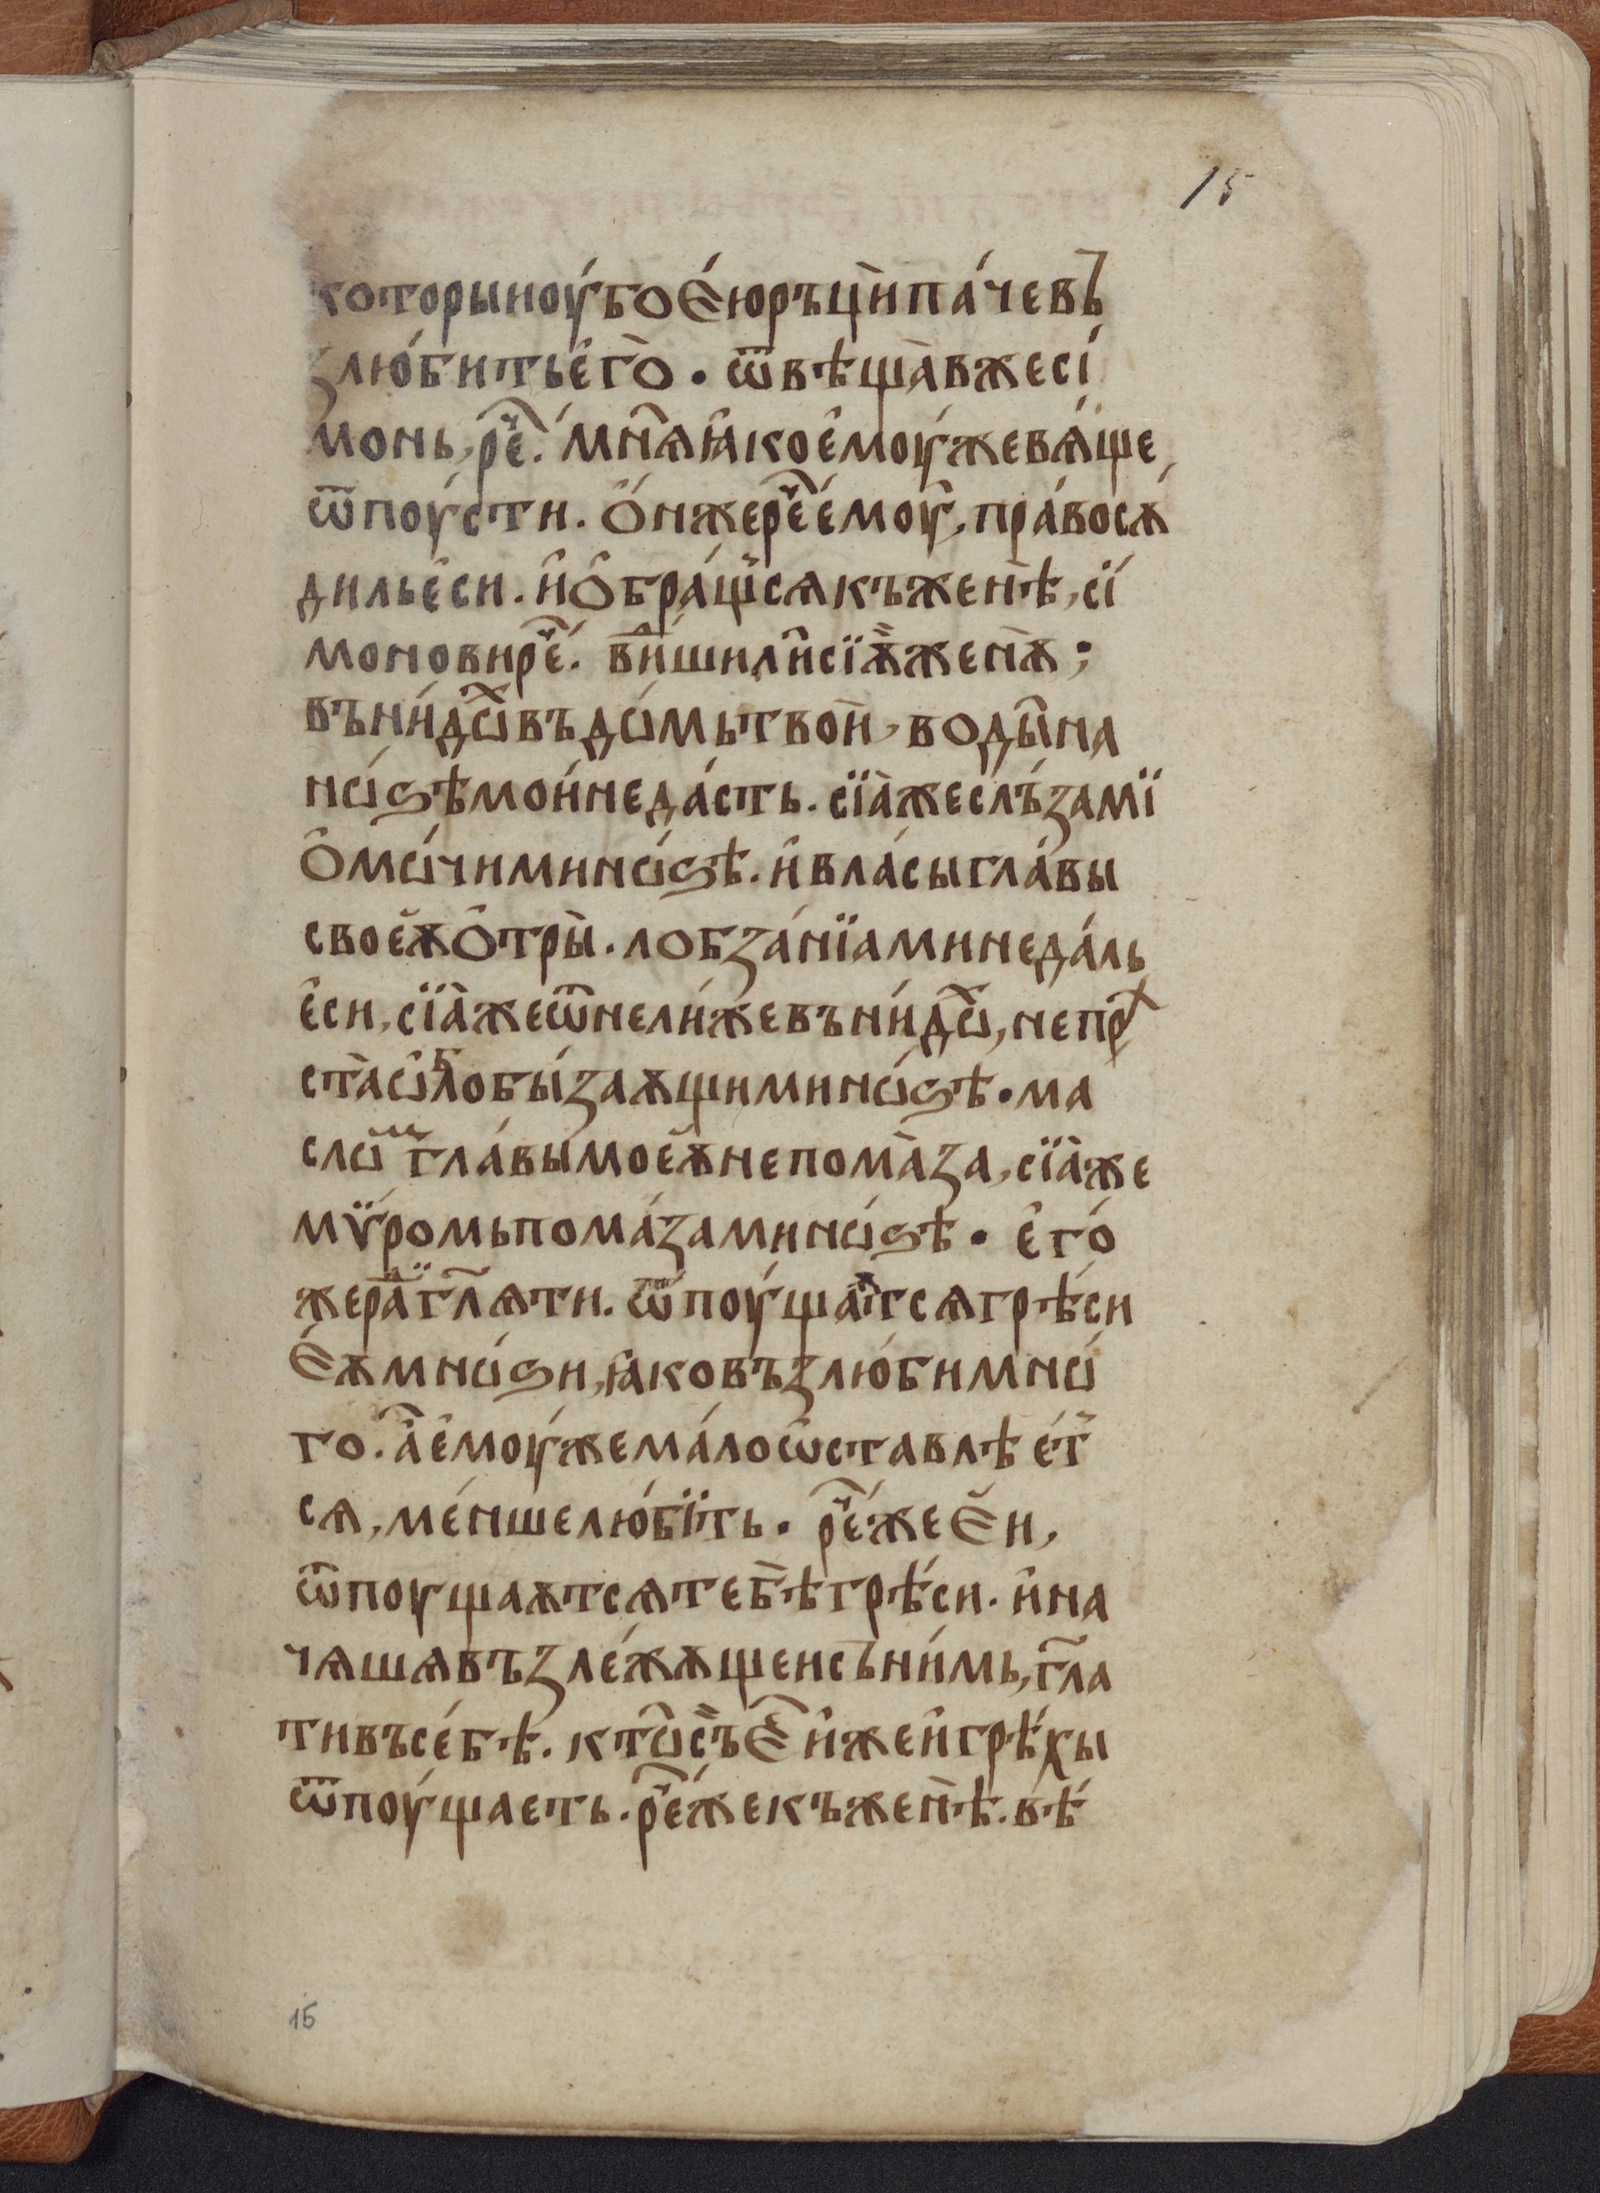 15
которыиоу́боѐюръцѝпа́чевъ
злю́битьего̀. ѿвѣща̀вжесі́
монь, рече҃. мнѧ҄ꙗкое҆моу́жевѧ́ще
ѿпоу́сти. ѻ҆́нжерече҃емоу̀, пра́восѫ
дильѐси. и҆ѻбра́щⷭ҇сѧкъженѣ̀, сі́
моновирече҃. ви́дишилѝсїѫ̀женѫ̀;
въни́дѡⷯвъдѡ́мьтвоѝ, водѝна
нѡ́ѕѣмоѝнеда́сть. сїа̀жеслъ́замї
ѻ҆мѡ́чиминѡ́ѕѣ. и҆вла́сыгла́вы
своеѫ̀ѻтры̀. лобза́нїаминеда́ль
ѐси, сїа̀жеѿнели́жевъни́дѡⷯ, непрѣ
ста̀ѡблобы́заѫщиминѡ́ѕѣ. ма
слѡⷨгла́вымоеѫ̀непома̀за, сїа̀же
мѵ́ромьпома́заминѡ́ѕѣ. его́
жера́дигл҃ѧти. ѿпоу́щаѫтсѧгрѣ́си
ѐѫмнѡ́ѕи, ꙗковъзлю́бимнѡ́
го. а҆е҆моу́жема́лоѡставлѣе́т
сѧ, ме́ншелю́бїть. рече҃жеѐи,
ѿпоущаѫтсѧтебѣ̀грѣ́си. и҆на
чѧшѧвъзле́жѫщеисъни́мь, гл҃а
тивъсе́бѣ. ктѡ̀съѐи҆жеи҆грѣ́хы
ѿпоу́щаеть. рече҃жекъженѣ̀. вѣ́
15